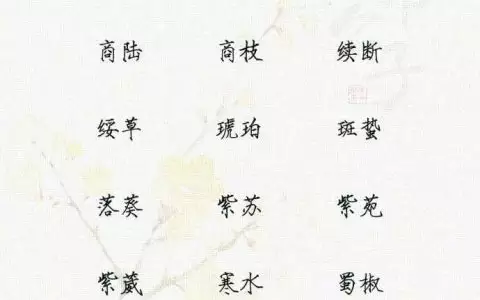 商陆 商枝 续断
绥草 琥珀 斑蛰
落葵 紫苏 紫苑
紫葳 寒水 蜀椒